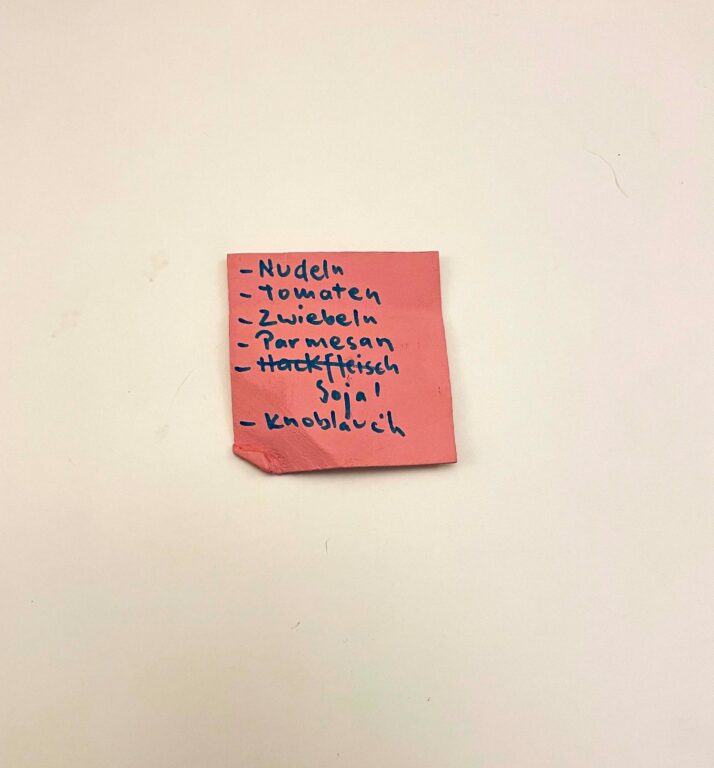 - Nudeln
- Tomaten
- Zwiebeln
- Parmesan
- Hackfleisch
Soja!
- Knoblauch